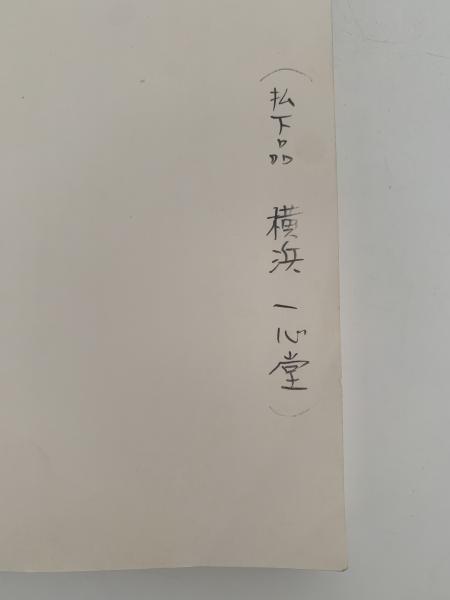 (払下品 横浜 一心堂)